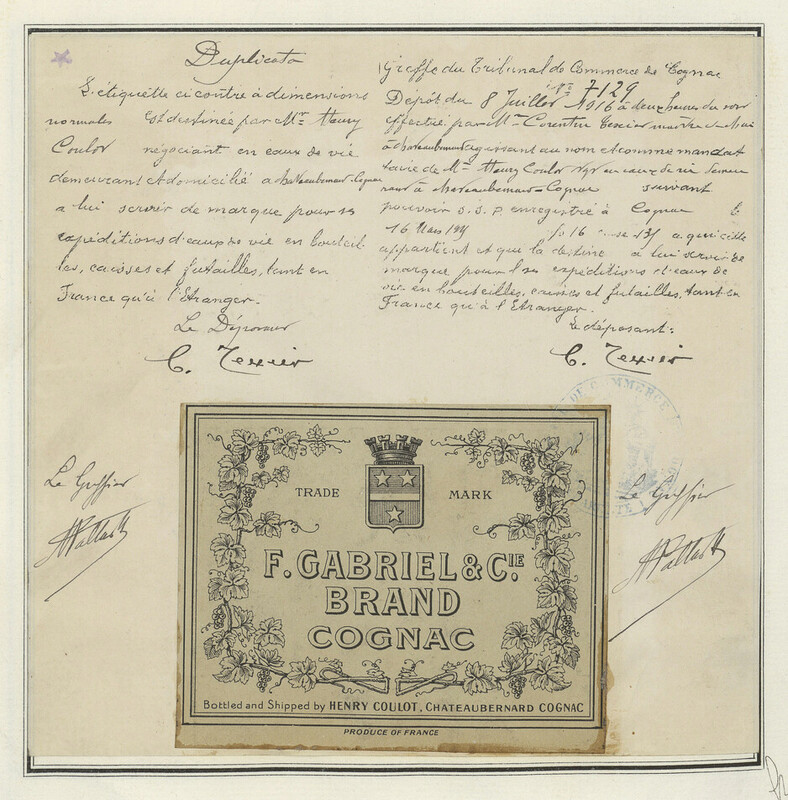 Duplicata
L'étiquette ci contre à dimensions
normales Est destinée par Mr. Henry
Coulot négociant en eaux de vie
demeurant et domicilié à chateaubernard-Cognac
a lui servir de marque pour ses
expéditions d'eaux de vie en bouteil
les, caisses et futailles, tant en
France qu'à l'Etranger.
Le Déposant
C. Texier
Greffe du Tribunal de Commerce de Cognac
No 7129
Dépôt du 8 Juillet 1916 à deux heures du soir
effectué par Mr. Corentin Texier maître de chai
à chateaubernard agissant au nom et comme mandat
taire de Mr. Henry Coulot Ngt en eaux de vie demeu
rant à chateaubernard-Cognac suivant
pouvoir s.s.p. enregistré à Cognac le
16 Mars fo 16 a qui elle
appartient et que la destine à lui servir de
marque pour ses expéditions d'eaux de
vie en bouteilles, caisses et futailles, tant en
France qu'à l'Etranger.
Le déposant:
C. Texier
DE COMMERCE
Le Greffier
Le Greffier
TRADE MARK
F. GABRIEL & CIE.
BRAND
COGNAC
Bottled and Shipped by HENRY COULOT, CHATEAUBERNARD COGNAC
PRODUCE OF FRANCE